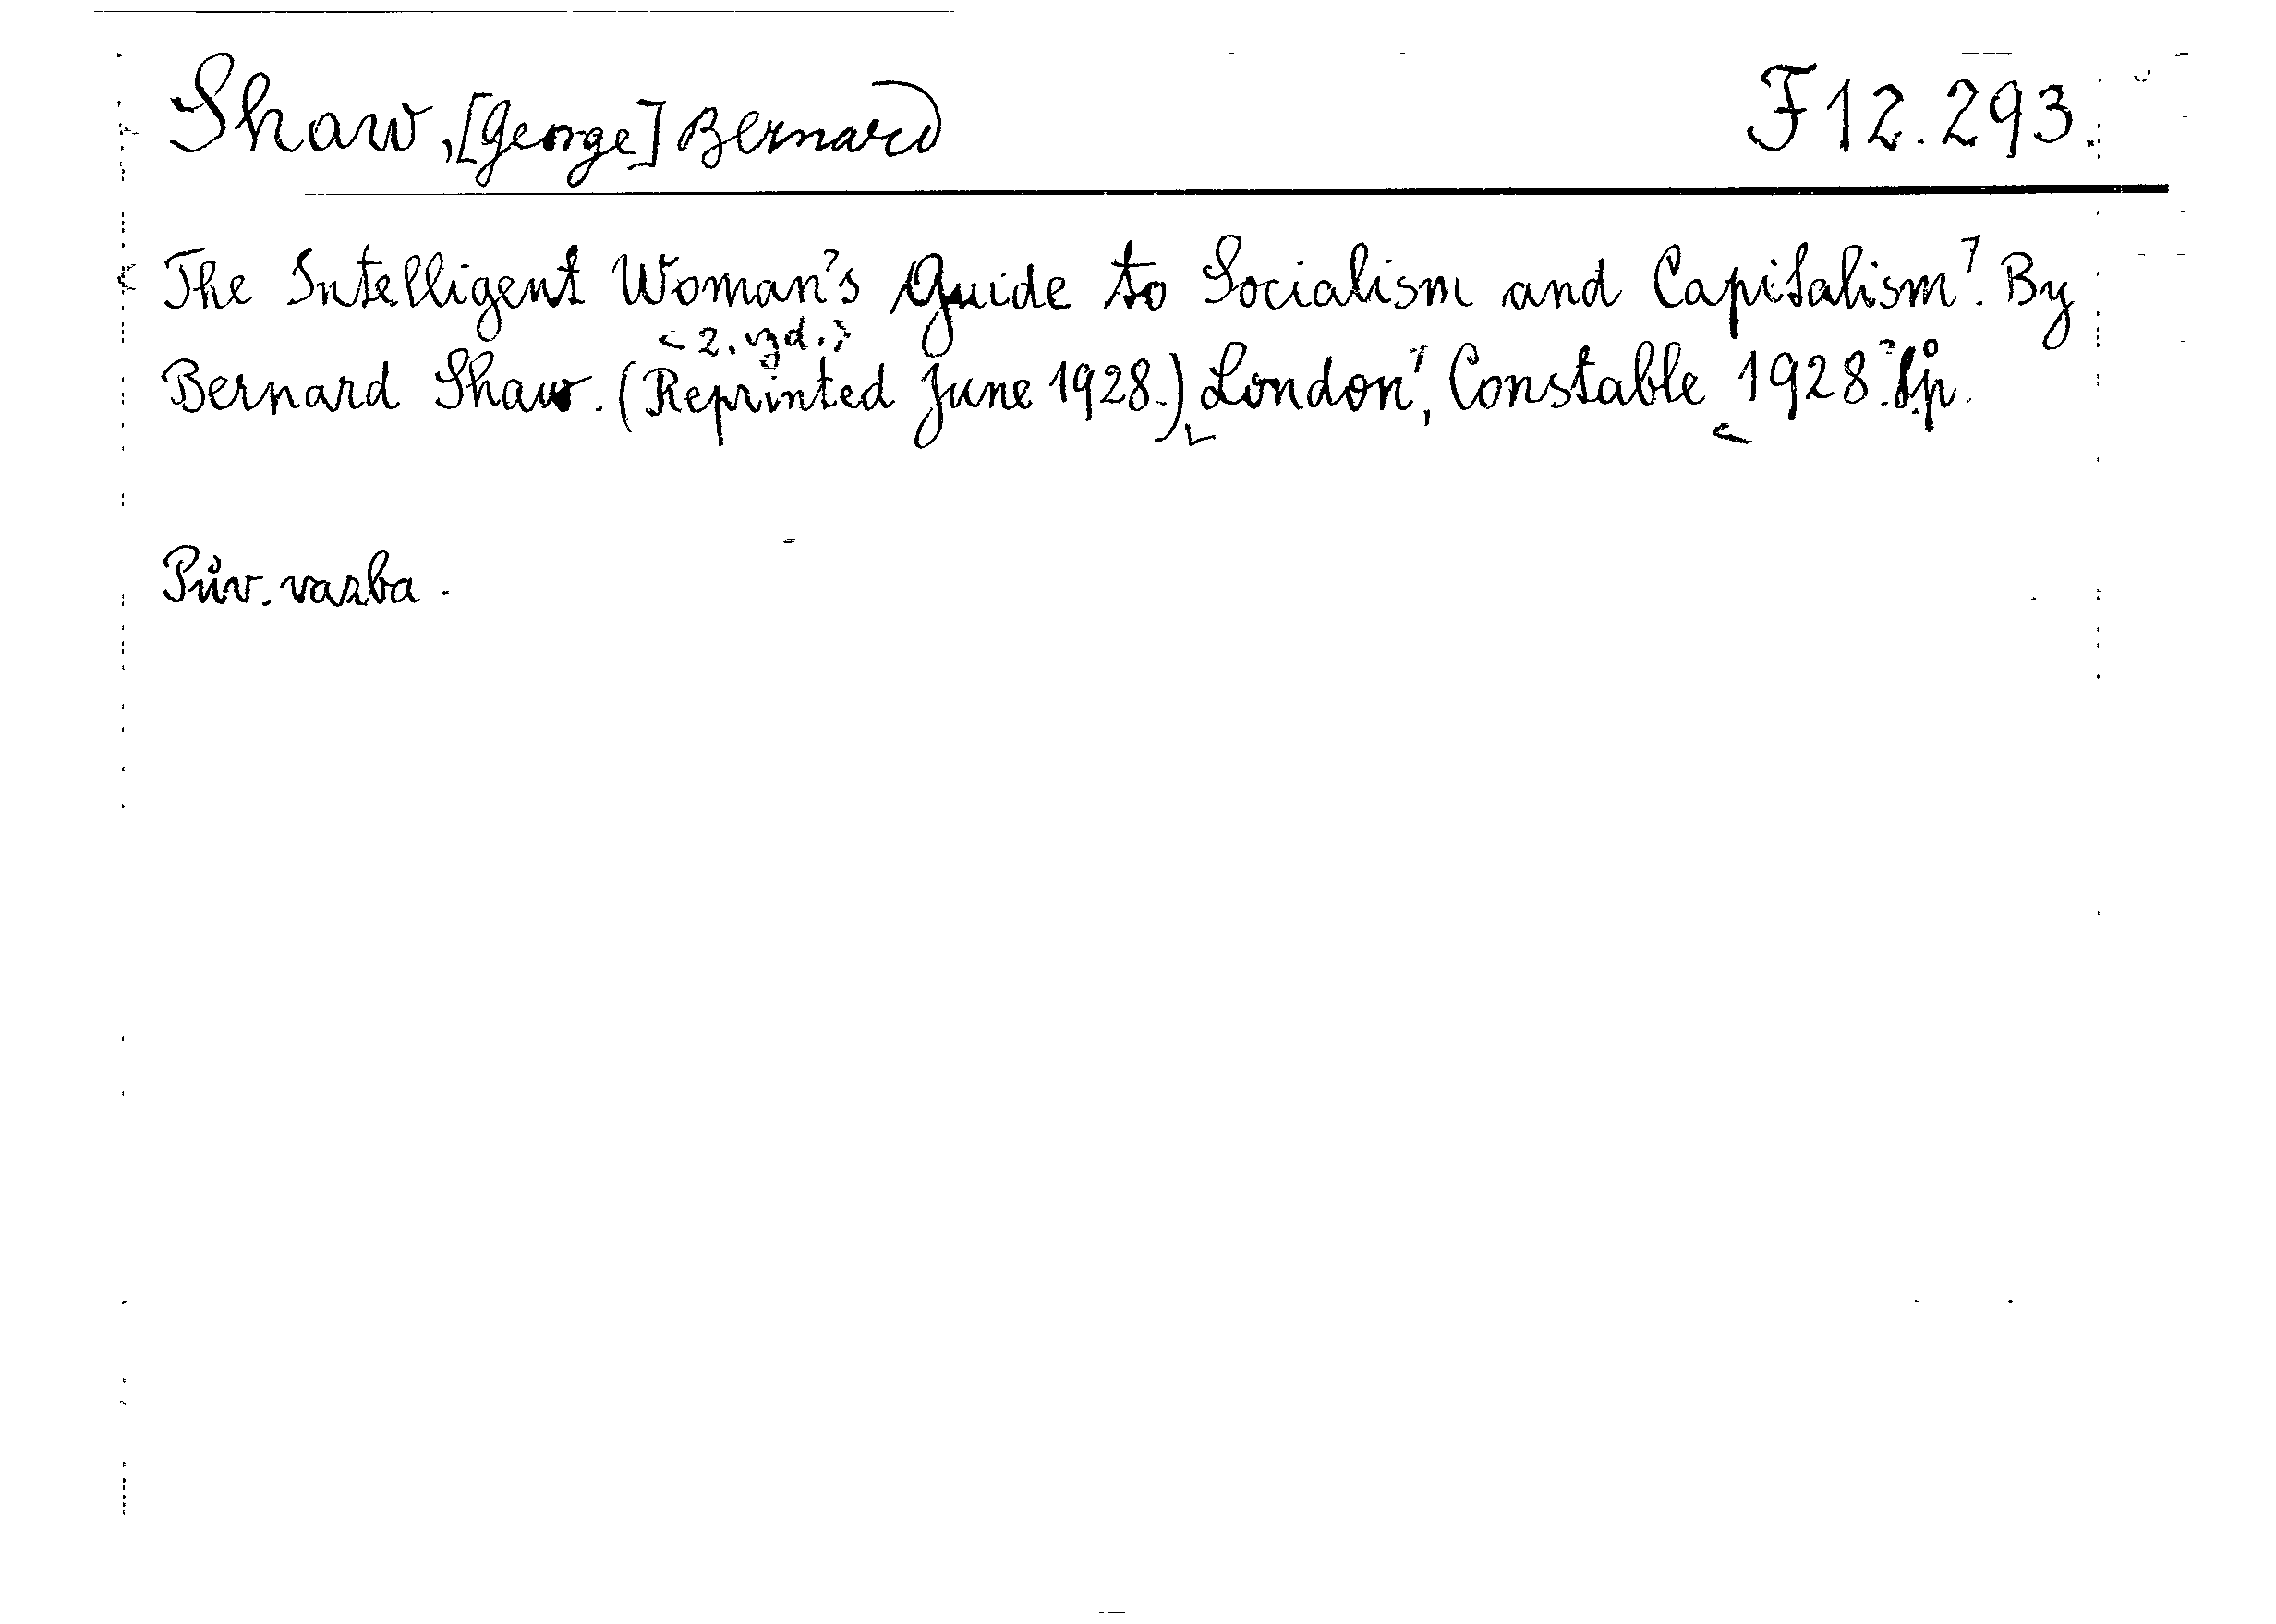 Shaw, [George] Bernard F 12.293.
The Intelligent Woman's Guide to Socialism and Capitalism. By
<2. vyd.>
Bernard Shaw. (Reprinted June 1928.) London, Constable 1928.
Pův. vazba.